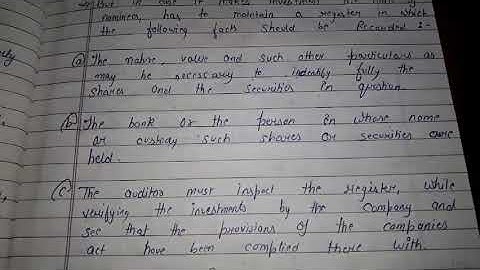 But in case it makes investment
nominee, has to maintain a register in which
the following facts should be Recorded :-
(a) The nature, value and such other particulars as
may be necessary to indentify fully the
shares and the securities in question.
(b) The bank or the person in whose name
or custody such shares or securities are
held.
(c) The auditor must inspect the register, while
verifying the investments by the Company and
see that the provisions of the companies
act have been complied there with.